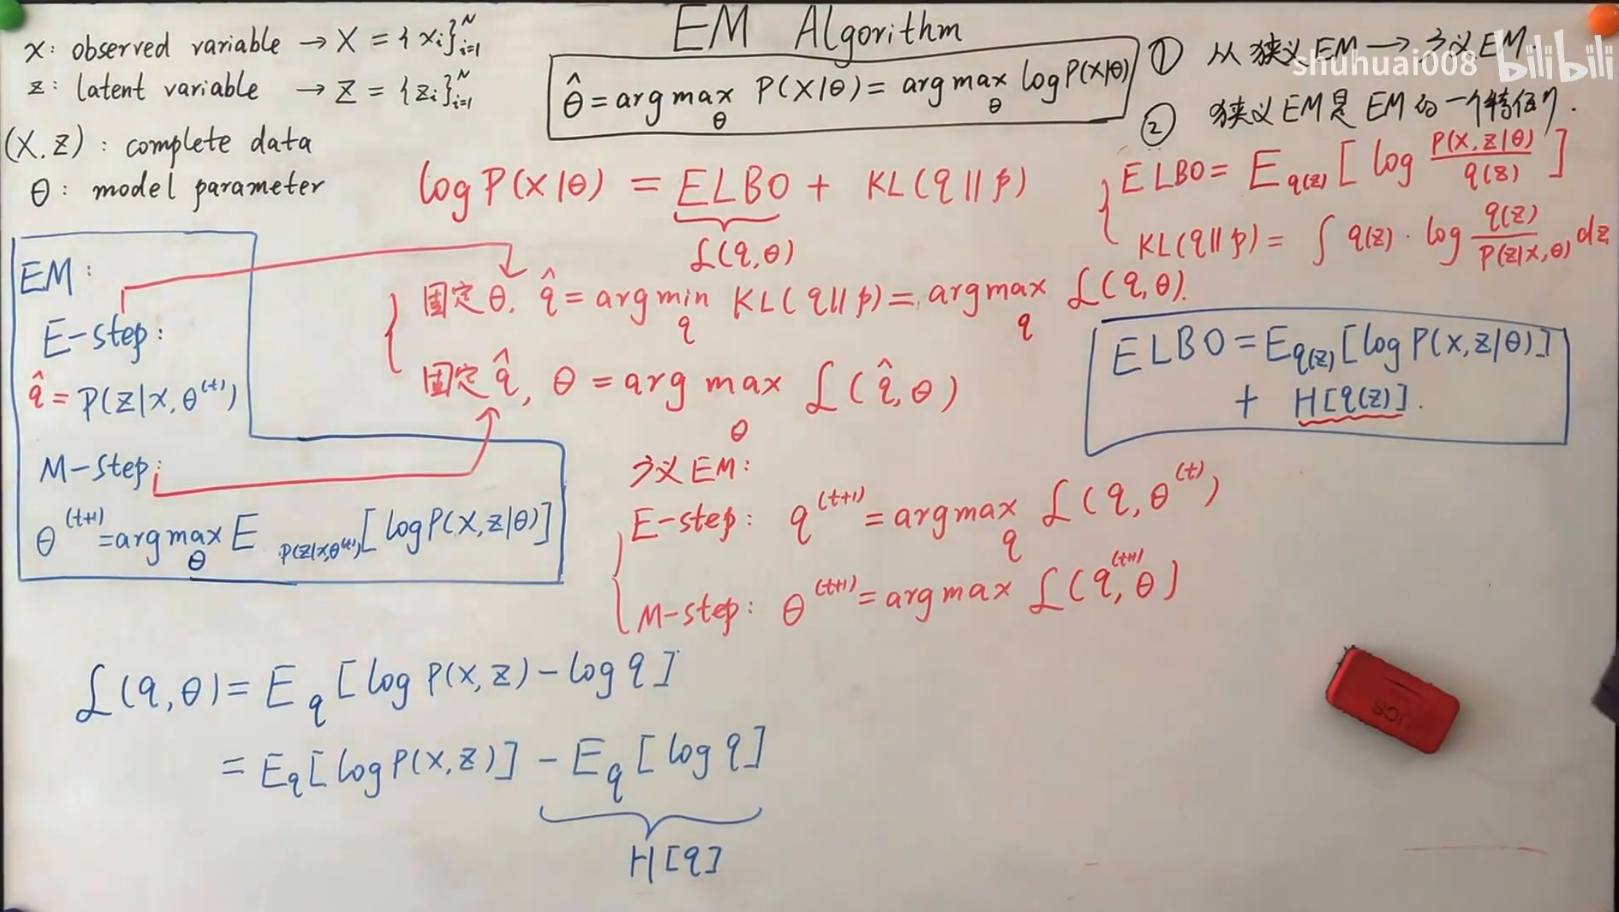 EM Algorithm
x: observed variable → X = {xᵢ}ᵢ₌₁ᴺ
z: latent variable → Z = {zᵢ}ᵢ₌₁ᴺ
(X, Z): complete data
θ: model parameter
θ̂ = argmax_θ P(X|θ) = argmax_θ log P(X|θ)
① 从狭义EM → 广义EM.
② 狭义EM是EM的一个特例.
shuhuai008 bilibili
log P(X|θ) = ELBO + KL(q||p)
L(q,θ)
ELBO = E_q(z) [log P(X,Z|θ) / q(z)]
KL(q||p) = ∫ q(z) · log q(z) / P(z|x,θ) dz
固定θ, q̂ = argmin_q KL(q||p) = argmax_q L(q,θ).
固定q̂, θ = argmax_θ L(q̂,θ)
EM:
E-step:
q̂ = P(z|x,θ⁽ᵗ⁾)
M-step:
θ⁽ᵗ⁺¹⁾ = argmax_θ E [log P(X,Z|θ)]
ELBO = E_q(z)[log P(X,Z|θ)]
+ H[q(z)].
广义EM:
E-step: q⁽ᵗ⁺¹⁾ = argmax_q L(q,θ⁽ᵗ⁾)
M-step: θ⁽ᵗ⁺¹⁾ = argmax L(q⁽ᵗ⁺¹⁾,θ)
L(q,θ) = E_q [log P(X,Z) - log q]
= E_q [log P(X,Z)] - E_q [log q]
H[q]